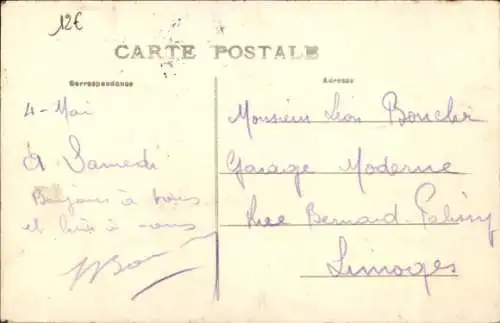 12€
CARTE POSTALE
Correspondance
Adresse
4 - Mai
A Samedi
à vous
et à vous
Monsieur Léon Boucher
Garage Moderne
Rue Bernard-Palissy
Limoges